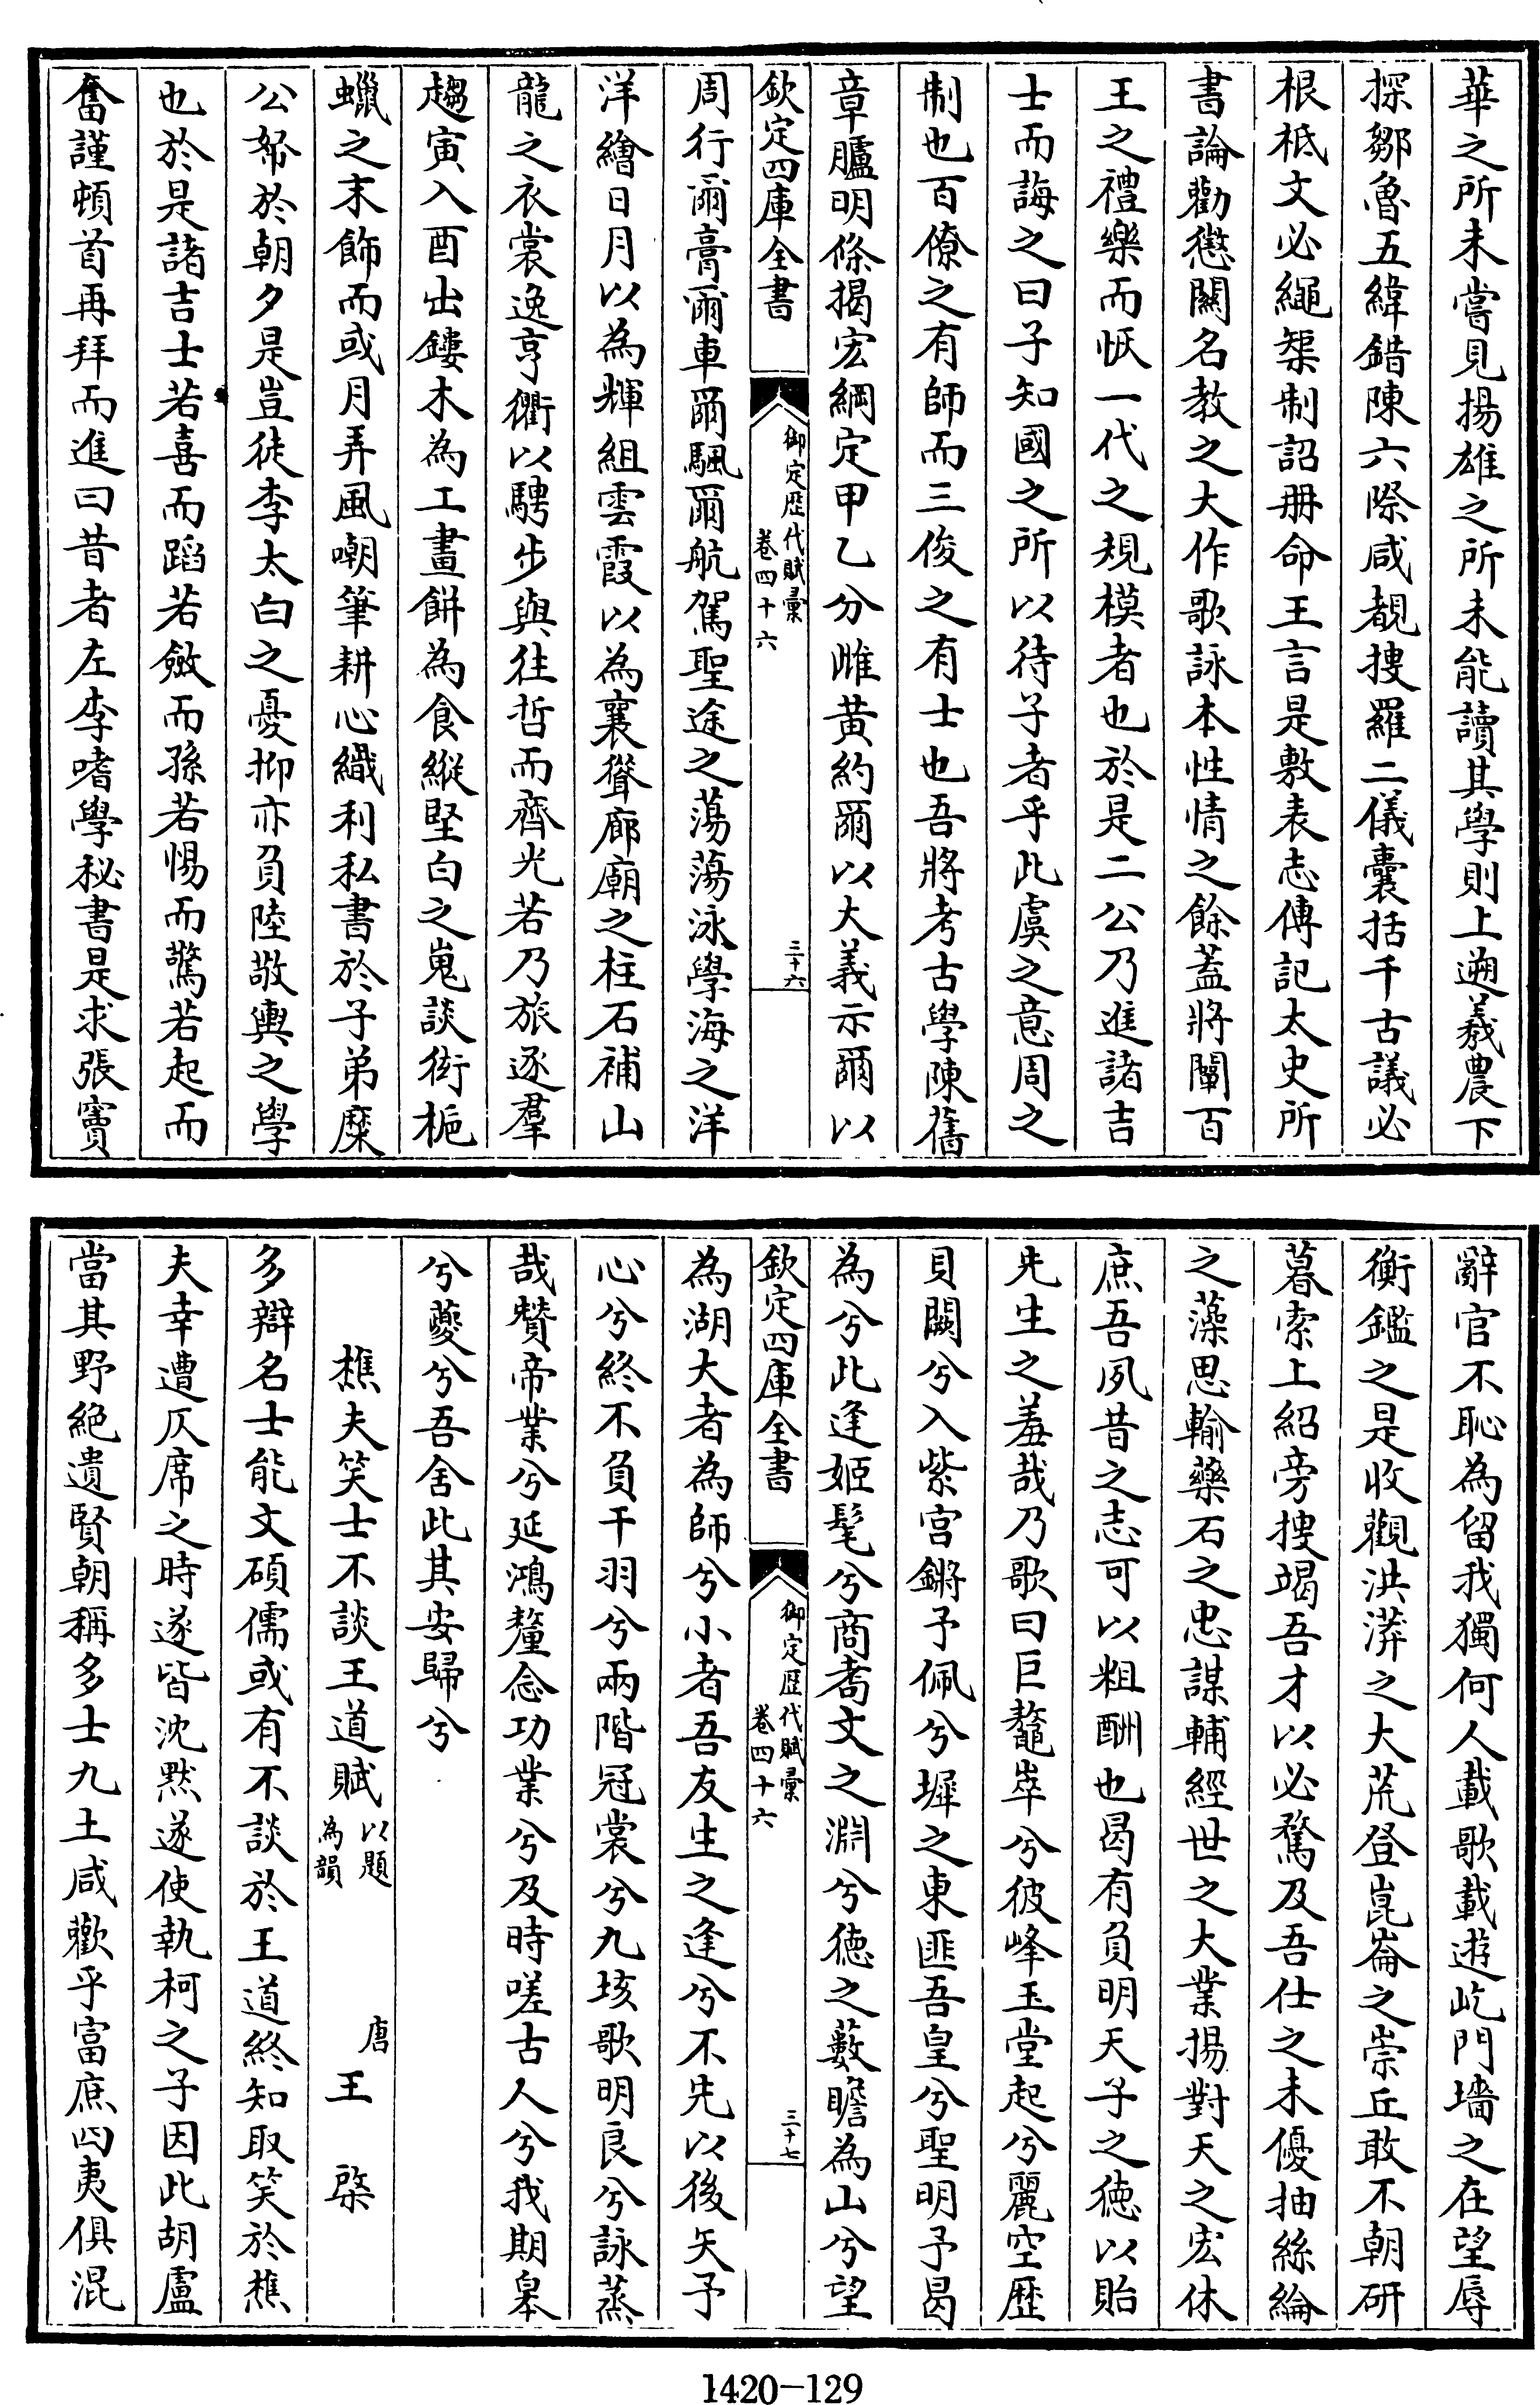 華之所未嘗見揚雄之所未能讀其學則上遡羲農下
探鄒魯五緯錯陳六際咸覩捜羅二儀囊括千古議必
根柢文必繩槼制詔冊命王言是敷表志傳記太史所
書論勸懲闗名教之大作歌詠本性情之餘蓋將闡百
王之禮樂而恢一代之規模者也於是二公乃進諸吉
士而誨之曰子知國之所以待子者乎此虞之意周之
制也百僚之有師而三俊之有士也吾將考古學陳舊
章臚明條揭宏綱定甲乙分雌黄約爾以大義示爾以
欽定四庫全書
御定歴代賦彙
卷四十六
三十六
周行爾膏爾車爾颿爾航駕聖途之蕩蕩泳學海之洋
洋繪日月以為輝組雲霞以為襄聳廊廟之柱石補山
龍之衣裳逸亨衢以騁步與往哲而齊光若乃旅逐羣
趨寅入酉出鏤木為工畫餅為食縱堅白之嵬談衒梔
蠟之末飾而或月弄風嘲筆耕心織利私書於子弟糜
公帑於朝夕是豈徒李太白之憂抑亦負陸敬輿之學
也於是諸吉士若喜而蹈若斂而孫若惕而驚若起而
奮謹頓首再拜而進曰昔者左李嗜學秘書是求張竇
辭官不恥為留我獨何人載歌載遊屹門墻之在望辱
衡鑑之是收觀洪漭之大荒登崑崙之崇丘敢不朝研
暮索上紹旁捜竭吾才以必騖及吾仕之未優抽絲綸
之藻思輸藥石之忠謀輔經世之大業揚對天之宏休
庶吾夙昔之志可以粗酬也曷有負明天子之徳以貽
先生之羞哉乃歌曰巨鼇崒兮彼峰玉堂起兮麗空歴
貝闕兮入紫宫鏘予佩兮墀之東匪吾皇兮聖明予曷
為兮此逢姬髦兮商耇文之淵兮徳之藪瞻為山兮望
欽定四庫全書
御定歴代賦彙
卷四十六
三十七
為湖大者為師兮小者吾友生之逢兮不先以後矢予
心兮終不負干羽兮兩階冠裳兮九垓歌明良兮詠蒸
哉贊帝業兮延鴻釐念功業兮及時嗟古人兮我期皋
兮夔兮吾舍此其安歸兮
樵夫笑士不談王道賦以題為韻　唐王棨
多辯名士能文碩儒或有不談於王道終知取笑於樵
夫幸遭仄席之時遂皆沈黙遂使執柯之子因此胡盧
當其野絶遺賢朝稱多士九土咸歡乎富庶四夷俱混
1420-129